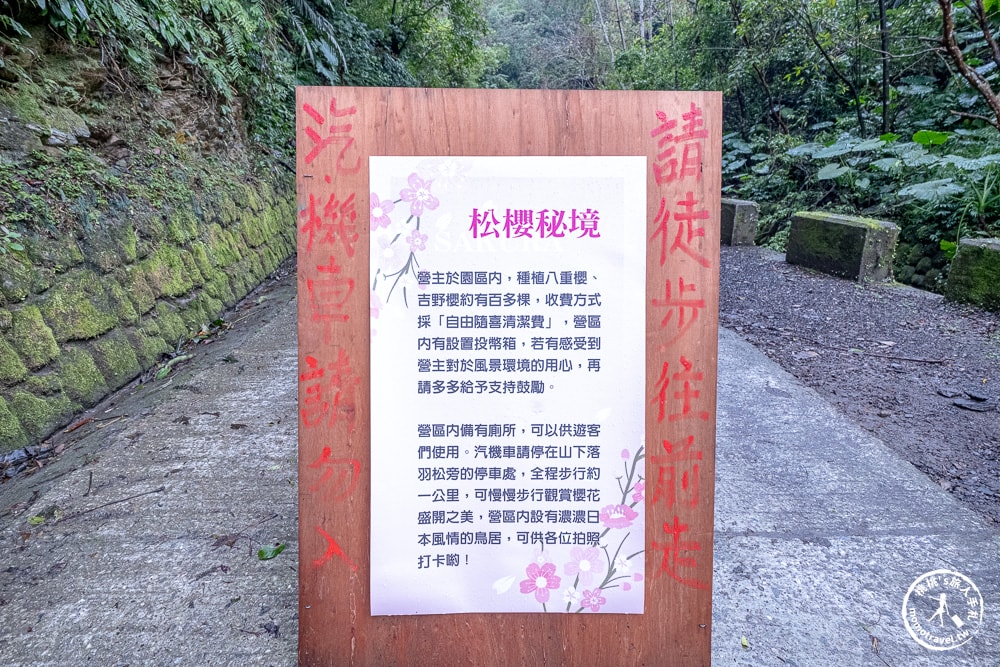 請徒步往前走
汽機車請勿入
松櫻秘境
營主於園區內，種植八重櫻、
吉野櫻約有百多棵，收費方式
採「自由隨喜清潔費」，營區
內有設置投幣箱，若有感受到
營主對於風景環境的用心，再
請多多給予支持鼓勵。
營區內備有廁所，可以供遊客
們使用。汽機車請停在山下落
羽松旁的停車處，全程步行約
一公里，可慢慢步行觀賞櫻花
盛開之美，營區內設有濃濃日
本風情的鳥居，可供各位拍照
打卡喲！
momotravel.tw